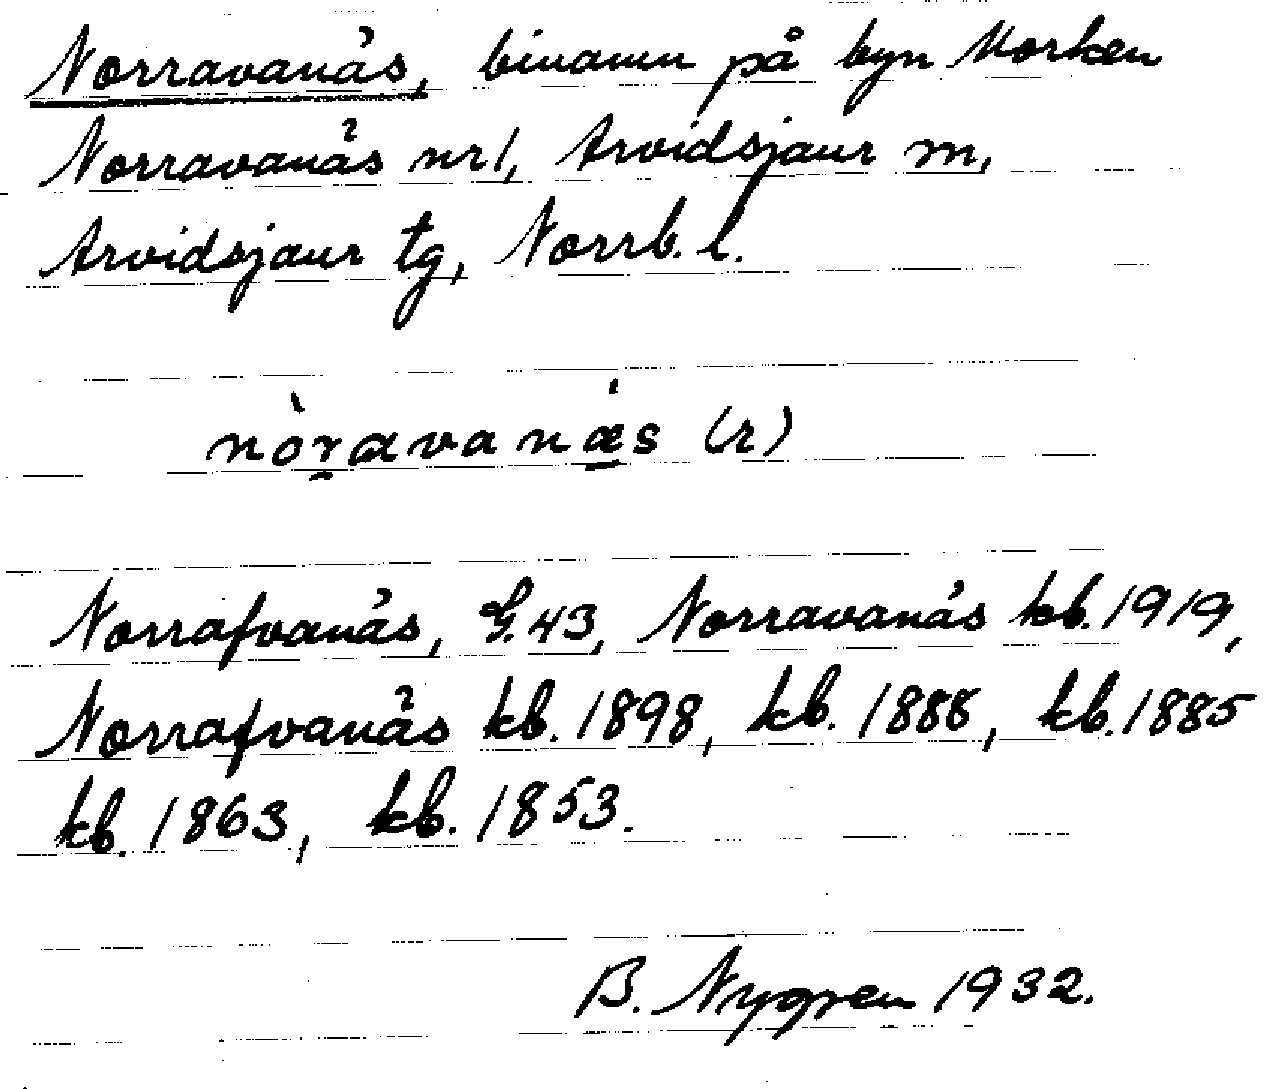 Norravanås, binamn på byn Morken
Norravanås nr 1, Arvidsjaur sn,
Arvidsjaur tg, Norrb. l.
nòr̯avanǽ̱s (r)
Norrafvanås, G. 43, Norravanås kb. 1919,
Norrafvanås kb. 1898, kb. 1888, kb. 1885
kb. 1863, kb. 1853.
B. Nygren 1932.